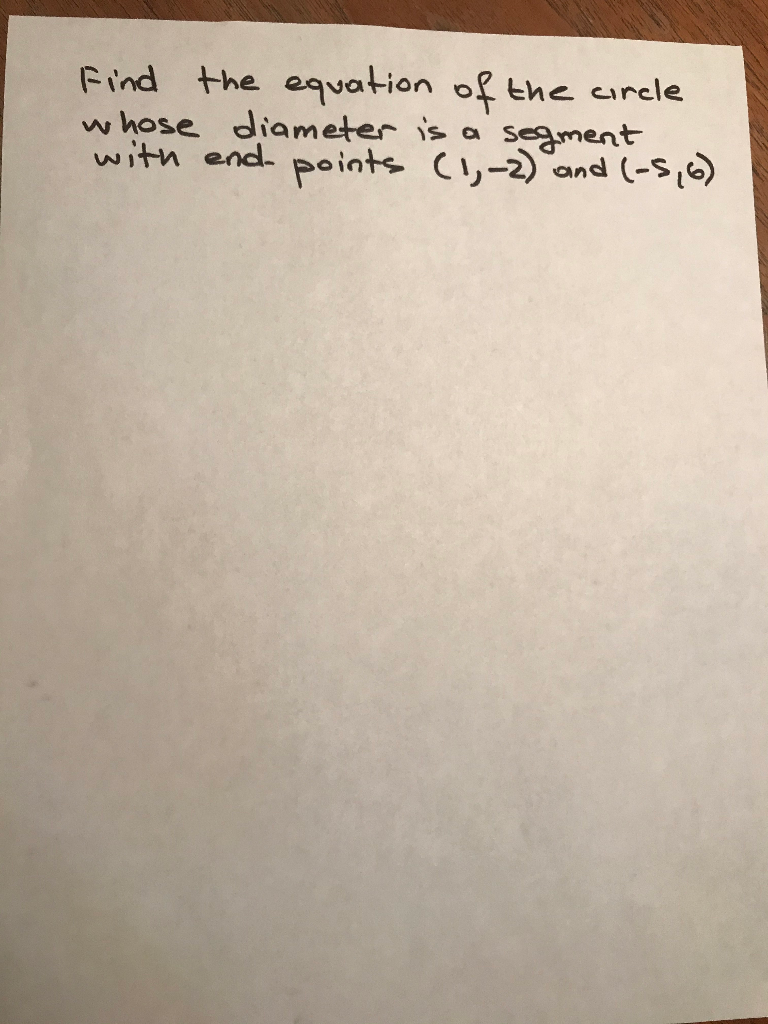 Find the equation of the circle
whose diameter is a segment
with end-points (1,-2) and (-5,6)